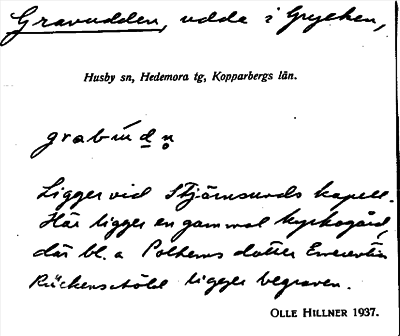 Gravudden, udde i Grycken,
Husby sn, Hedemora tg, Kopparbergs län.
grabúdn
Ligger vid Stjärnsunds kapell.
Här ligger en gammal kyrkogård,
där bl. a Polhems dotter Emerentia
Rückersköld ligger begraven.
OLLE HILLNER 1937.